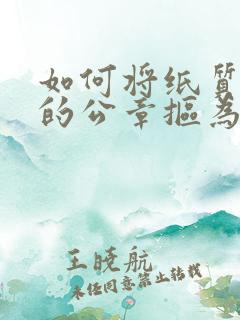 如何将纸质
的公章抠为
王晓航
未经同意禁止转载